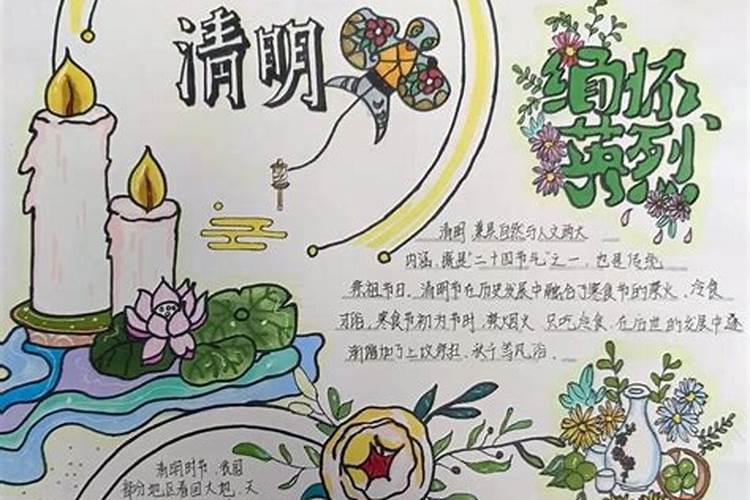 清明
缅怀
英烈
清明 兼具自然与人文两大
内涵，既是“二十四节气”之一，也是传统
祭祖节日，清明节在历史发展中融合了寒食节的禁火、冷食
习俗，寒食节初为节时，禁烟火，只吃冷食，在后世的发展中逐
渐增加了上坟祭扫、秋千等风俗，
清明时节，我国
部分地区春回大地，天